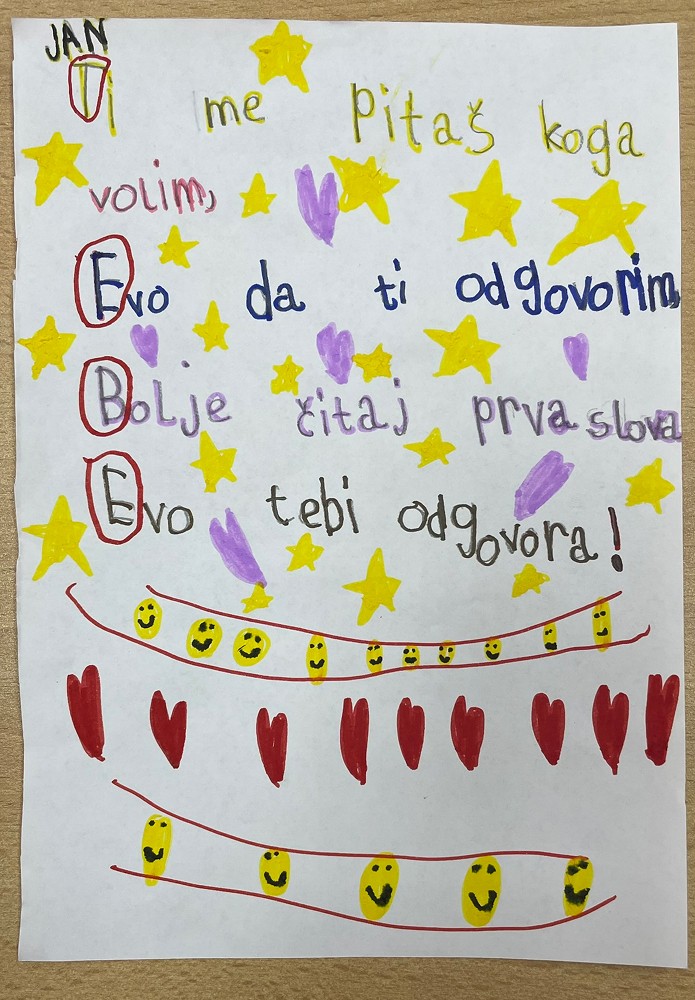 JAN
Ti me pitaš koga
volim,
Evo da ti odgovorim,
Bolje čitaj prva slova
Evo tebi odgovora!